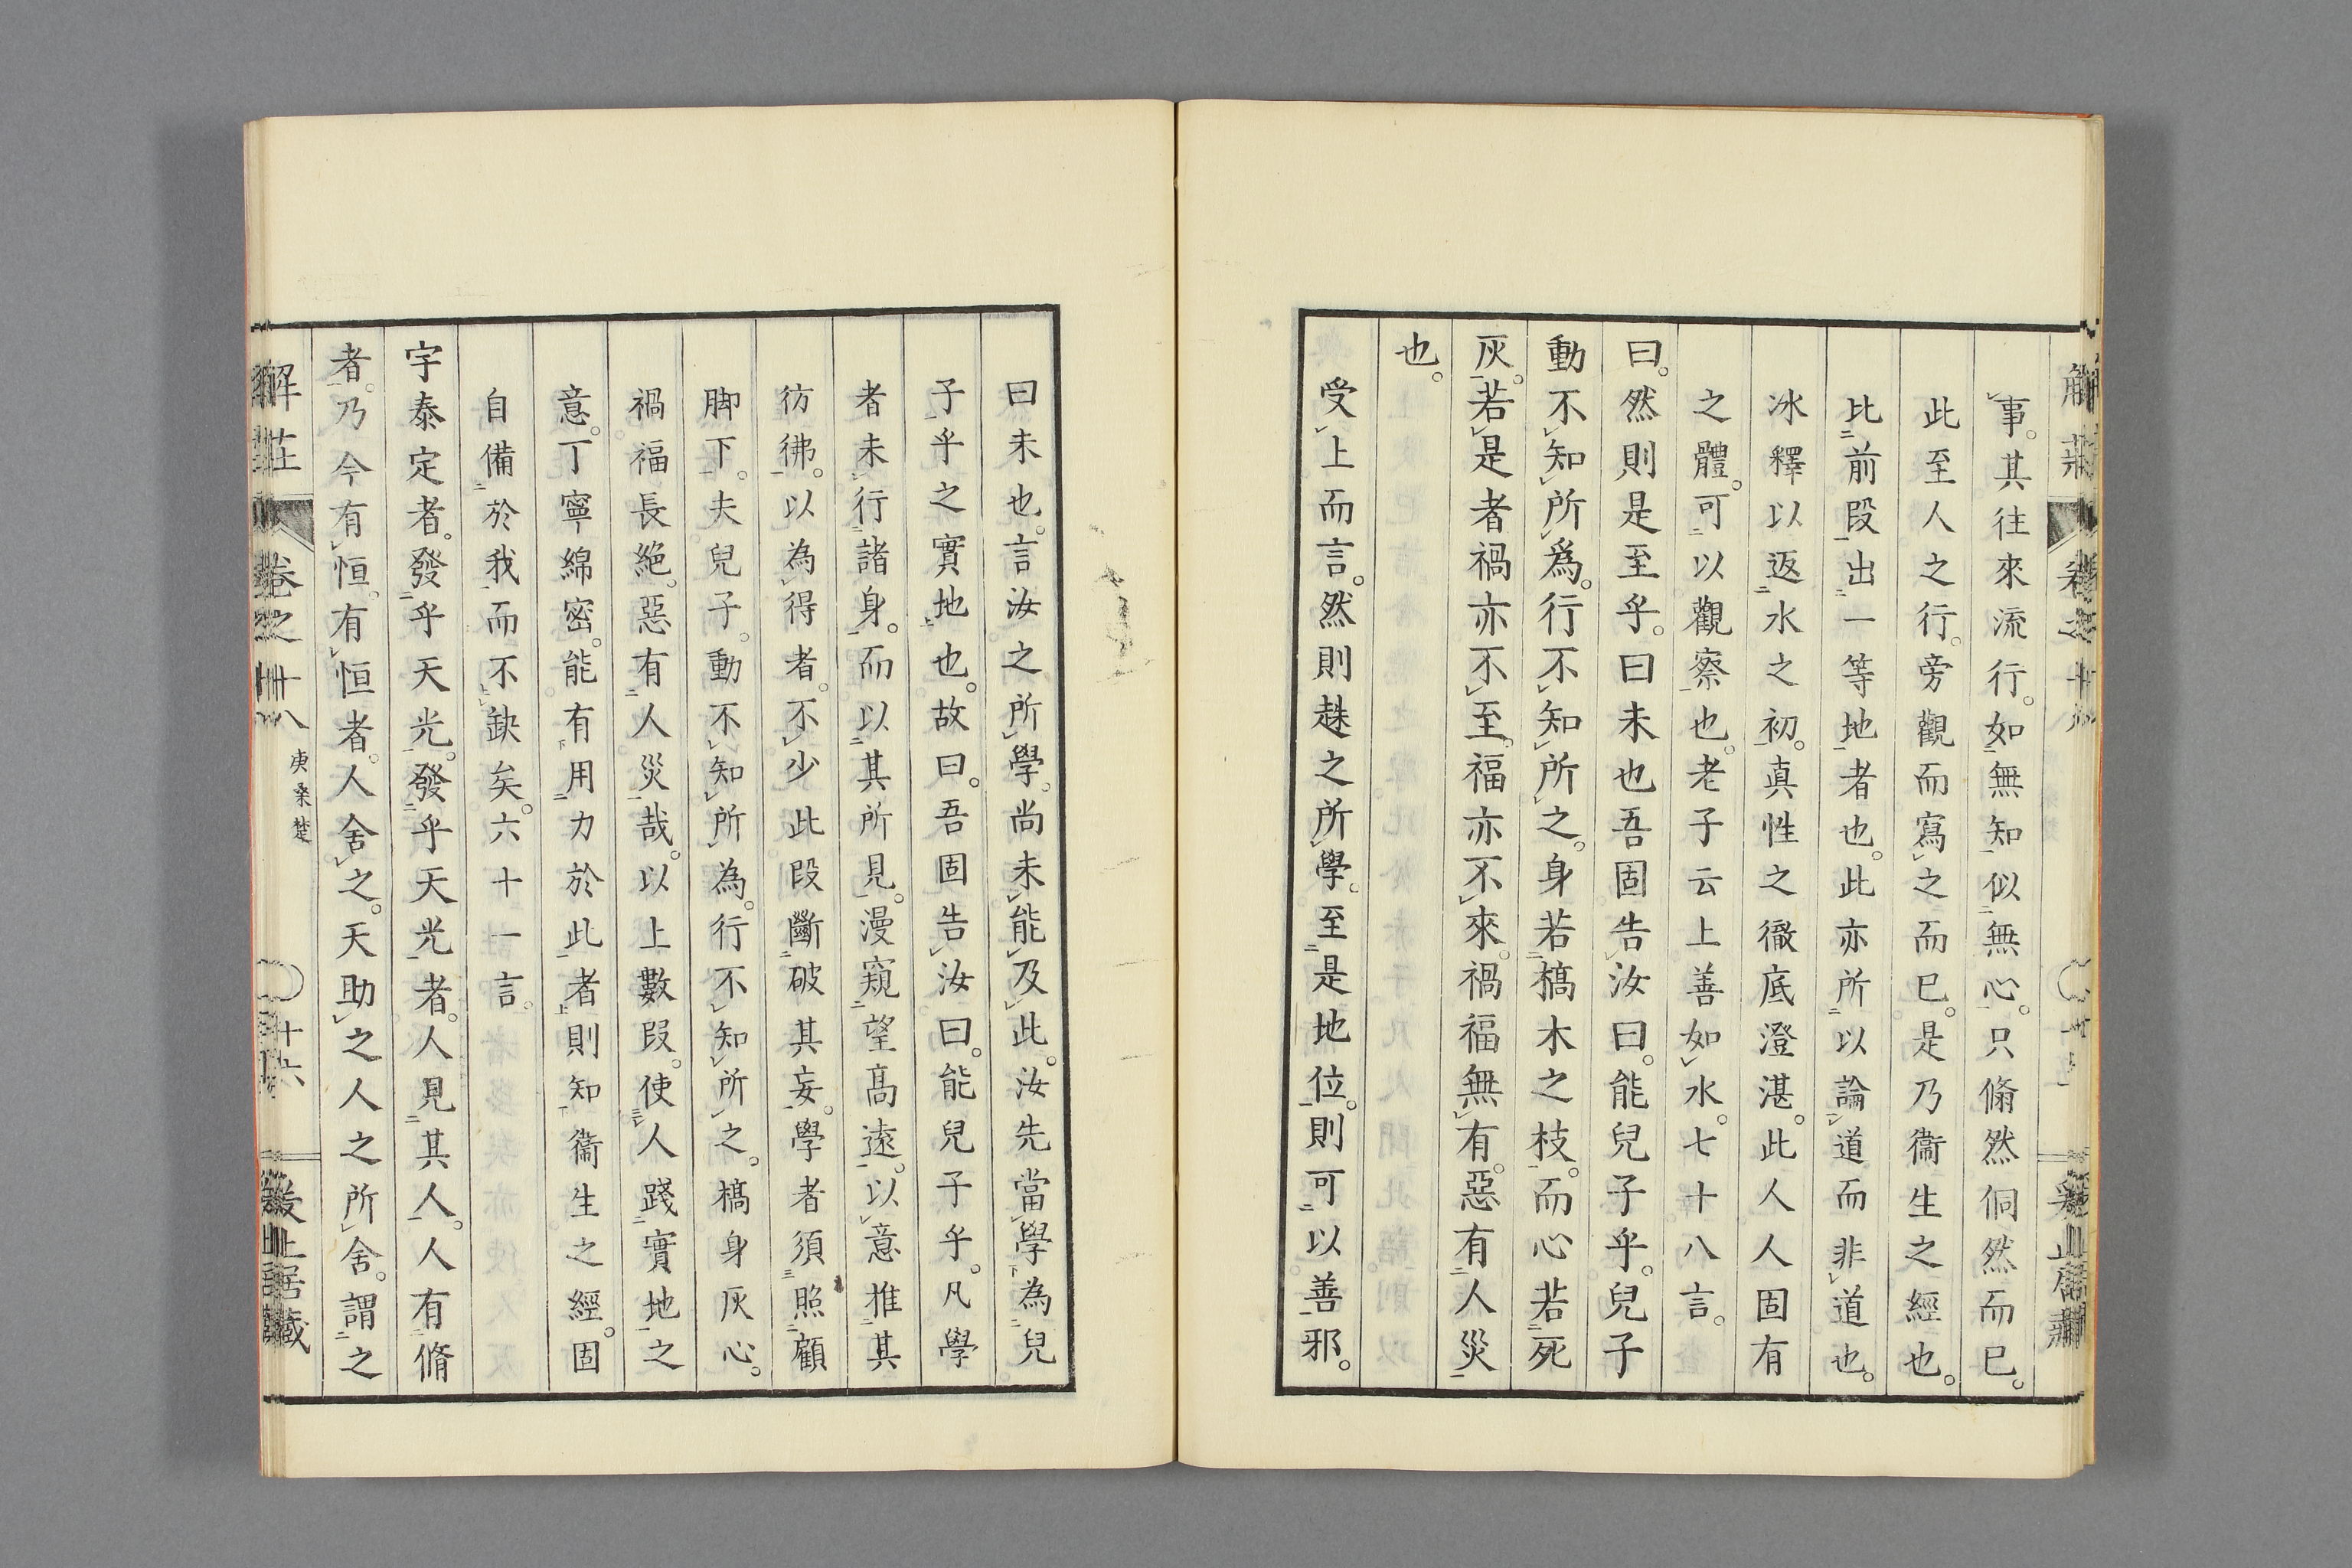 事。其往來流行。如無知似無心。只翛然侗然而已。
此至人之行。旁觀而寫之而已。是乃衞生之經也。
比前段出一等地者也。此亦所以論道而非道也。
冰釋以返水之初。真性之徹底澄湛。此人人固有
之體。可以觀察也。老子云上善如水。七十八言。
曰。然則是至乎。曰未也吾固告汝曰。能兒子乎。兒子
動不知所爲。行不知所之。身若槁木之枝。而心若死
灰。若是者禍亦不至。福亦不來。禍福無有。惡有人災
也。
受上而言。然則趎之所學。至是地位。則可以善邪。
曰未也。言汝之所學。尚未能及此。汝先當學為兒
子乎之實地也。故曰。吾固告汝曰。能兒子乎。凡學
者未行諸身。而以其所見。漫窺望高遠。以意推其
彷彿。以為得者。不少此段斷破其妄。學者須照顧
脚下。夫兒子。動不知所為。行不知所之。槁身灰心。
禍福長絶。惡有人災哉。以上數段。使人踐實地之
意。丁寧綿密。能有用力於此者則知衞生之經。固
自備於我而不缺矣。六十一言。
宇泰定者。發乎天光。發乎天光者。人見其人。人有脩
者。乃今有恒。有恒者。人舍之。天助之人之所舍。謂之
解莊 卷之十八 庚桑楚 十六